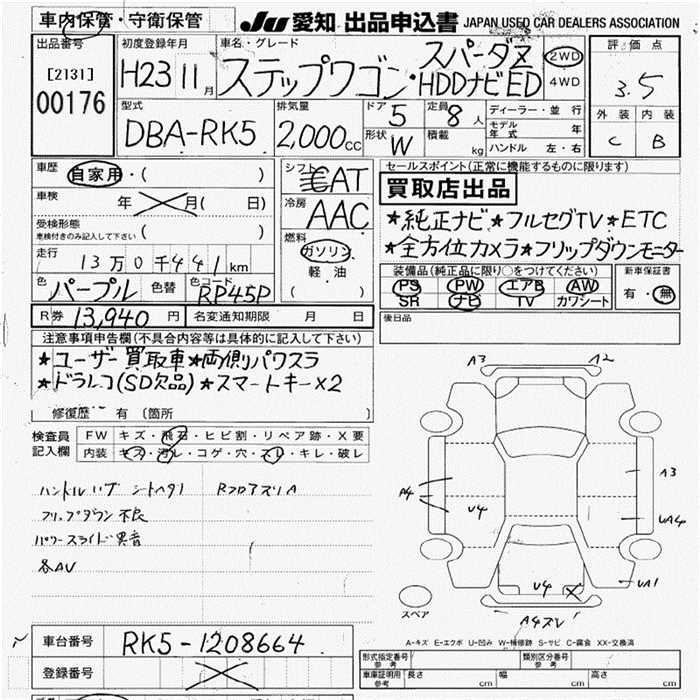 車内保管・守衛保管
JU 愛知 出品申込書 JAPAN USED CAR DEALERS ASSOCIATION
出品番号
[2131]
00176
初度登録年月
H23 11月
車名・グレード
ステップワゴン・スパーダZ
HDDナビED
2WD
4WD
評価点
3.5
外装 内装
C B
型式
DBA-RK5
排気量
2,000cc
ドア 5
形状 W
定員 8人
積載 kg
ディーラー・並行
モデル年式 年
ハンドル 左・右
車歴
自家用・( )
車検
年 月( 日)
受検形態
車検付きのみ記入して下さい ( )
走行
13万0千441km
色 パープル 色替 色コード RP45P
シフト
CAT
冷房
AAC
燃料
ガソリン
軽油
( )
R券 13,940円 名変通知期限 月 日
セールスポイント(正常に機能するものに限ります)
買取店出品
★純正ナビ★フルセグTV★ETC
★全方位カメラ★フリップダウンモニター
装備品(純正品に限り○をつけてください)
PS PW エアB AW
SR ナビ TV カワシート
新車保証書
有・無
後日品
注意事項申告欄(不具合内容等は具体的に記入して下さい)
★ユーザー買取車★両側パワスラ
★ドラレコ(SD欠品)★スマートキー×2
修復歴 有 (箇所 )
検査員記入欄
FW キズ・飛石・ヒビ割・リペア跡・X要
内装 キズ・汚レ・コゲ・穴・スレ・キレ・破レ
フリップダウン不良
パワースライド異音
各AU
A3
A2
A3
A4
U4
UA4
U4
X
UA1
A4ズレ
スペア
A-キズ E-エクボ U-凹み W-補修跡 S-サビ C-腐食 XX-交換済
車台番号 RK5-1208664
登録番号
型式指定番号 参考
類別区分番号 参考
車庫証明用 参考 長さ cm 幅 cm 高さ cm